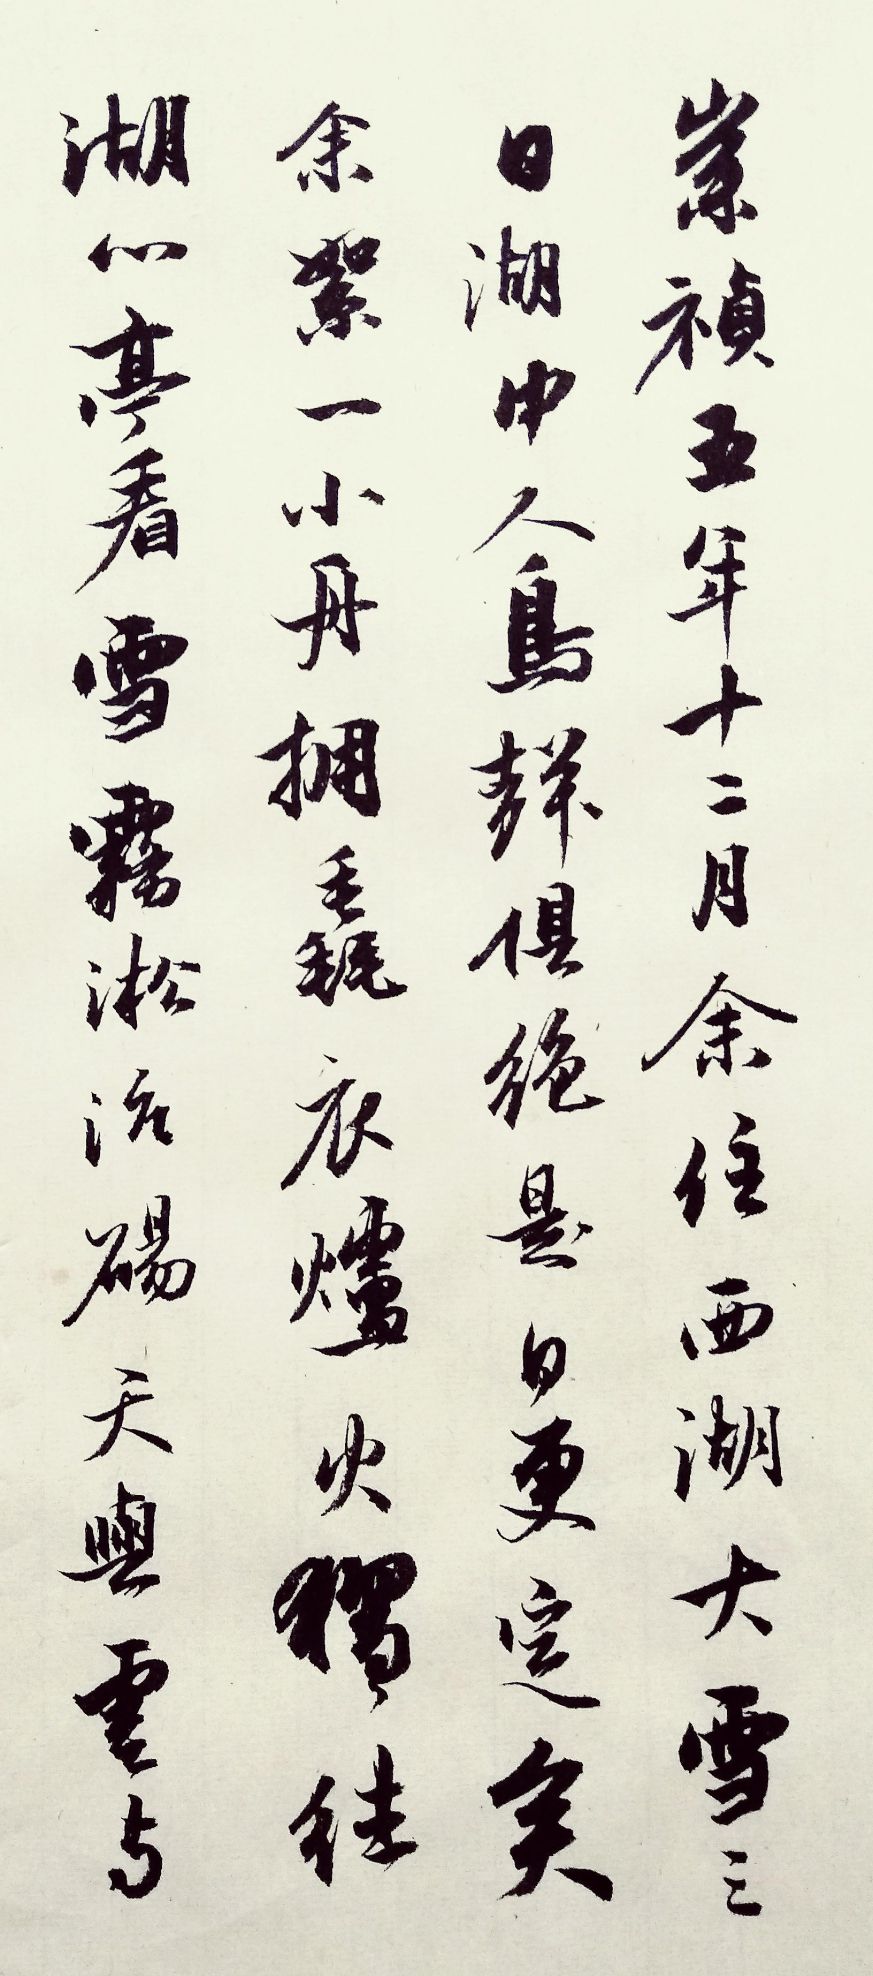 崇禎五年十二月余住西湖大雪三
日湖中人鳥聲俱絕是日更定矣
余拏一小舟擁毳衣爐火獨往
湖心亭看雪霧淞沆碭天與雲与